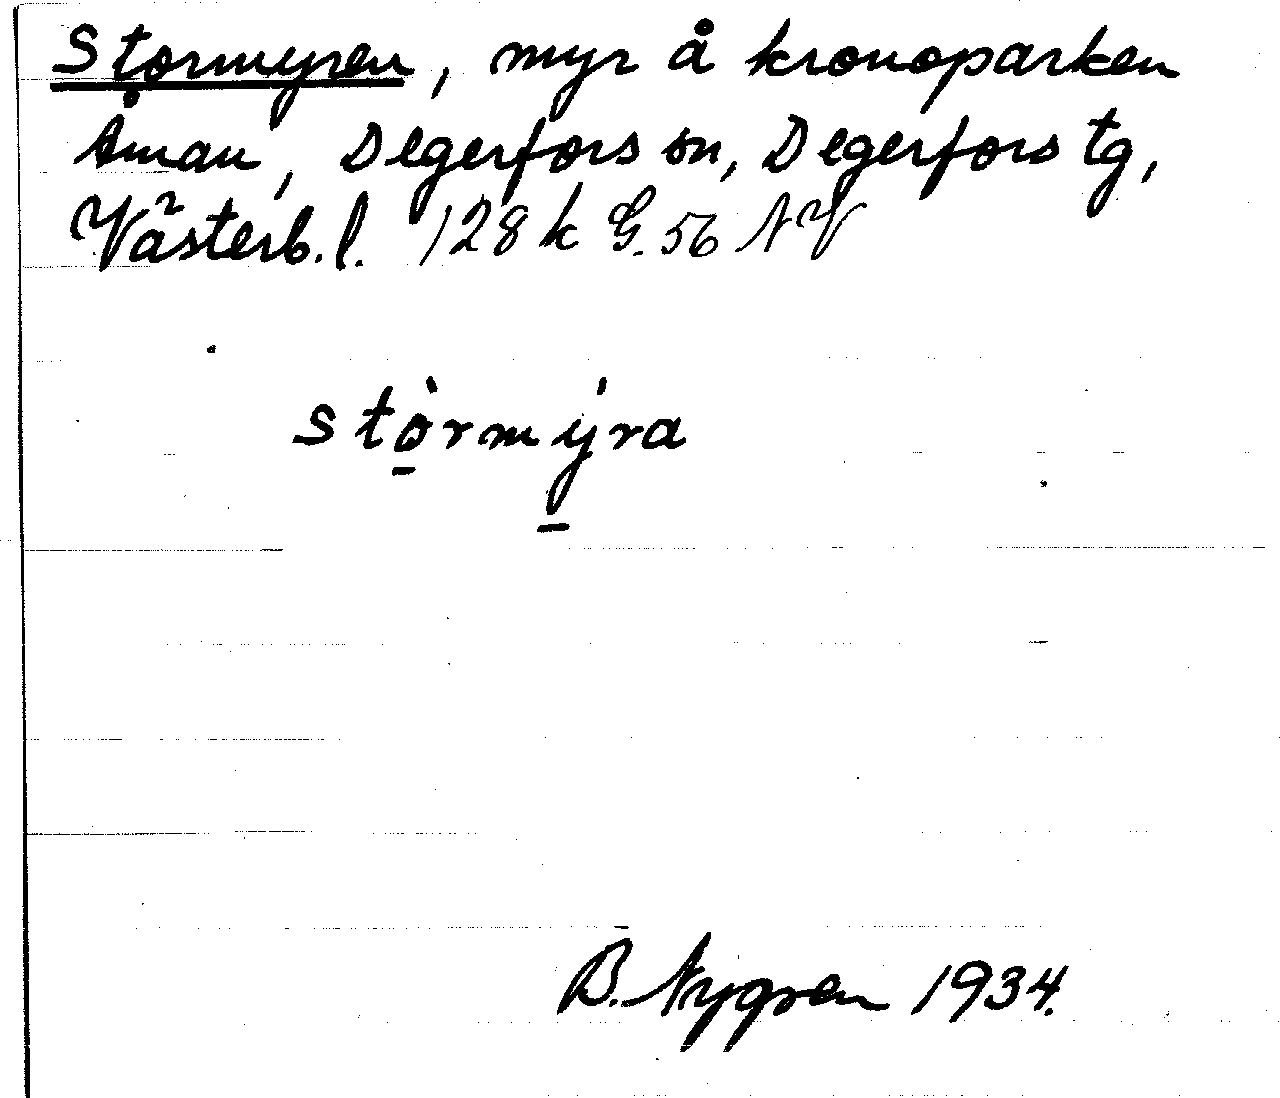 Stormyren, myr å kronoparken
Åman, Degerfors sn, Degerfors tg,
Västerb. l. 128 k G. 56 NV
stò̱rmý̱ra
B. Nygren 1934.